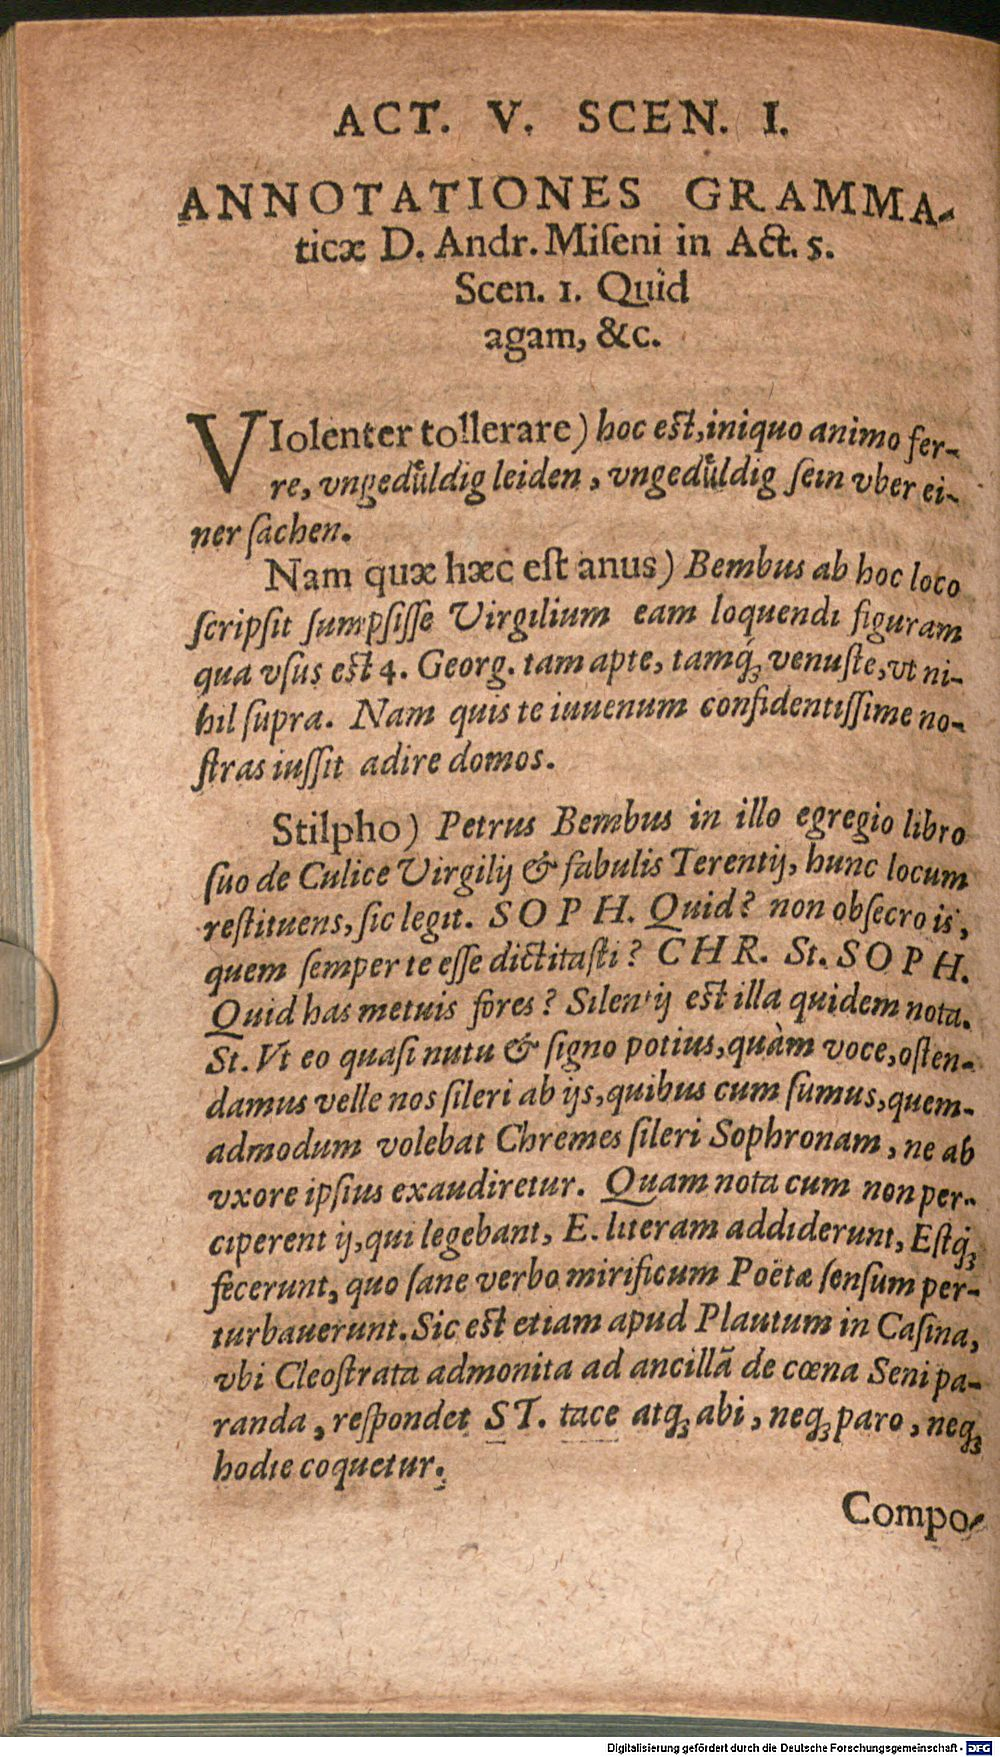 ACT. V. SCEN. I.
ANNOTATIONES GRAMMA-
ticæ D. Andr. Miſeni in Act. 5.
Scen. 1. Quid
agam, &c.
VIolenter tollerare) hoc eſt, iniquo animo fer-
re, vngedůldig leiden, vngedůldig ſein vber ei-
ner ſachen.
Nam quæ hæc eſt anus) Bembus ab hoc loco
ſcripſit ſumpſiſſe Virgilium eam loquendi figuram
qua vſus eſt 4. Georg. tam apte, tamq́ꝫ venuſte, vt ni-
hil ſupra. Nam quis te iuuenum confidentiſſime no-
ſtras iuſſit adire domos.
Stilpho) Petrus Bembus in illo egregio libro
ſuo de Culice Virgilij & fabulis Terentij, hunc locum
reſtituens, ſic legit. SOPH. Quid? non obſecro is,
quem ſemper te eſſe dictitaſti? CHR. St. SOPH.
Quid has metuis fores? Silentij eſt illa quidem nota.
St. Vt eo quaſi nutu & ſigno potius, quàm voce, oſten-
damus velle nos ſileri ab ijs, quibus cum ſumus, quem-
admodum volebat Chremes ſileri Sophronam, ne ab
vxore ipſius exaudiretur. Quam nota cum non per-
ciperent ij, qui legebant, E. literam addiderunt, Eſtq́ꝫ
fecerunt, quo ſane verbo mirificum Poëtæ ſenſum per-
turbauerunt. Sic eſt etiam apud Plautum in Caſina,
vbi Cleoſtrata admonita ad ancillã de cœna Seni pa-
randa, reſpondet ST. tace atqꝫ abi, neqꝫ paro, neqꝫ
hodie coquetur.
Compo-
Digitalisierung gefördert durch die Deutsche Forschungsgemeinschaft - DFG